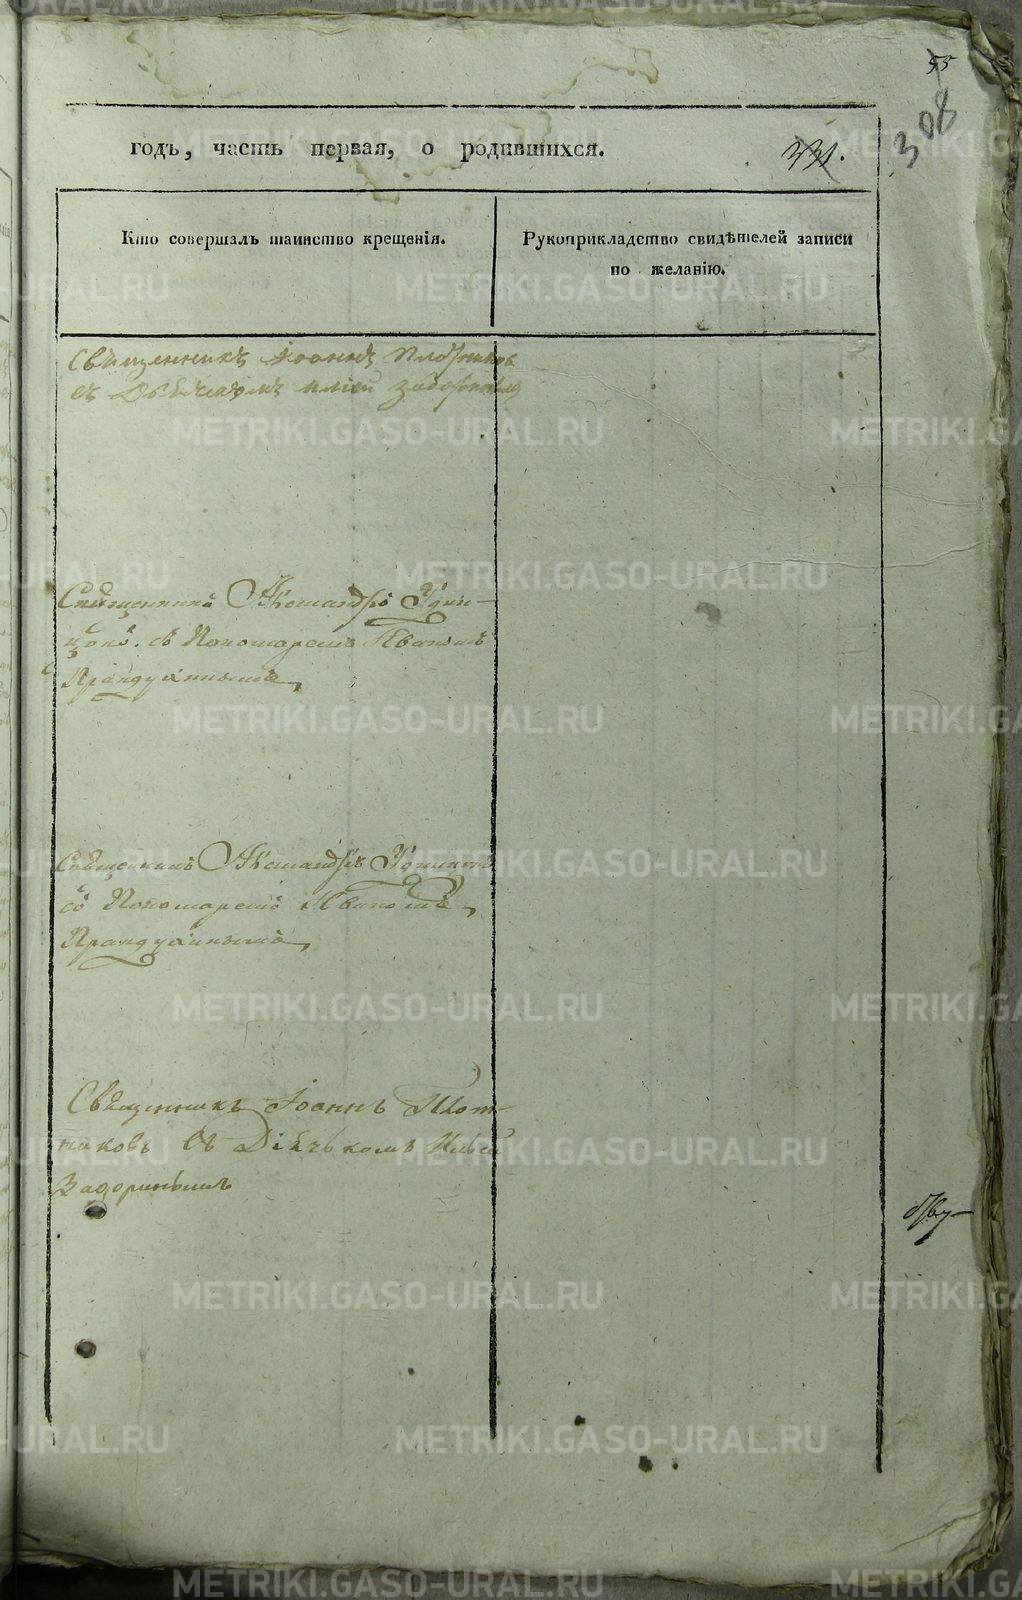 55
308
годъ, часть первая, о родившихся.
331.
Кто совершалъ таинство крещенія.
Рукоприкладство свидѣтелей записи
по желанію.
Священникъ Іоаннъ Плотников
съ Дьячкомъ Ильей Задориным
Священникъ Александръ
съ Пономаремъ Иваномъ
Священникъ Александръ
съ Пономаремъ Иваномъ
Священникъ Іоаннъ Плот-
никовъ съ Дьячкомъ Ильей
Задоринымъ
METRIKI.GASO-URAL.RU